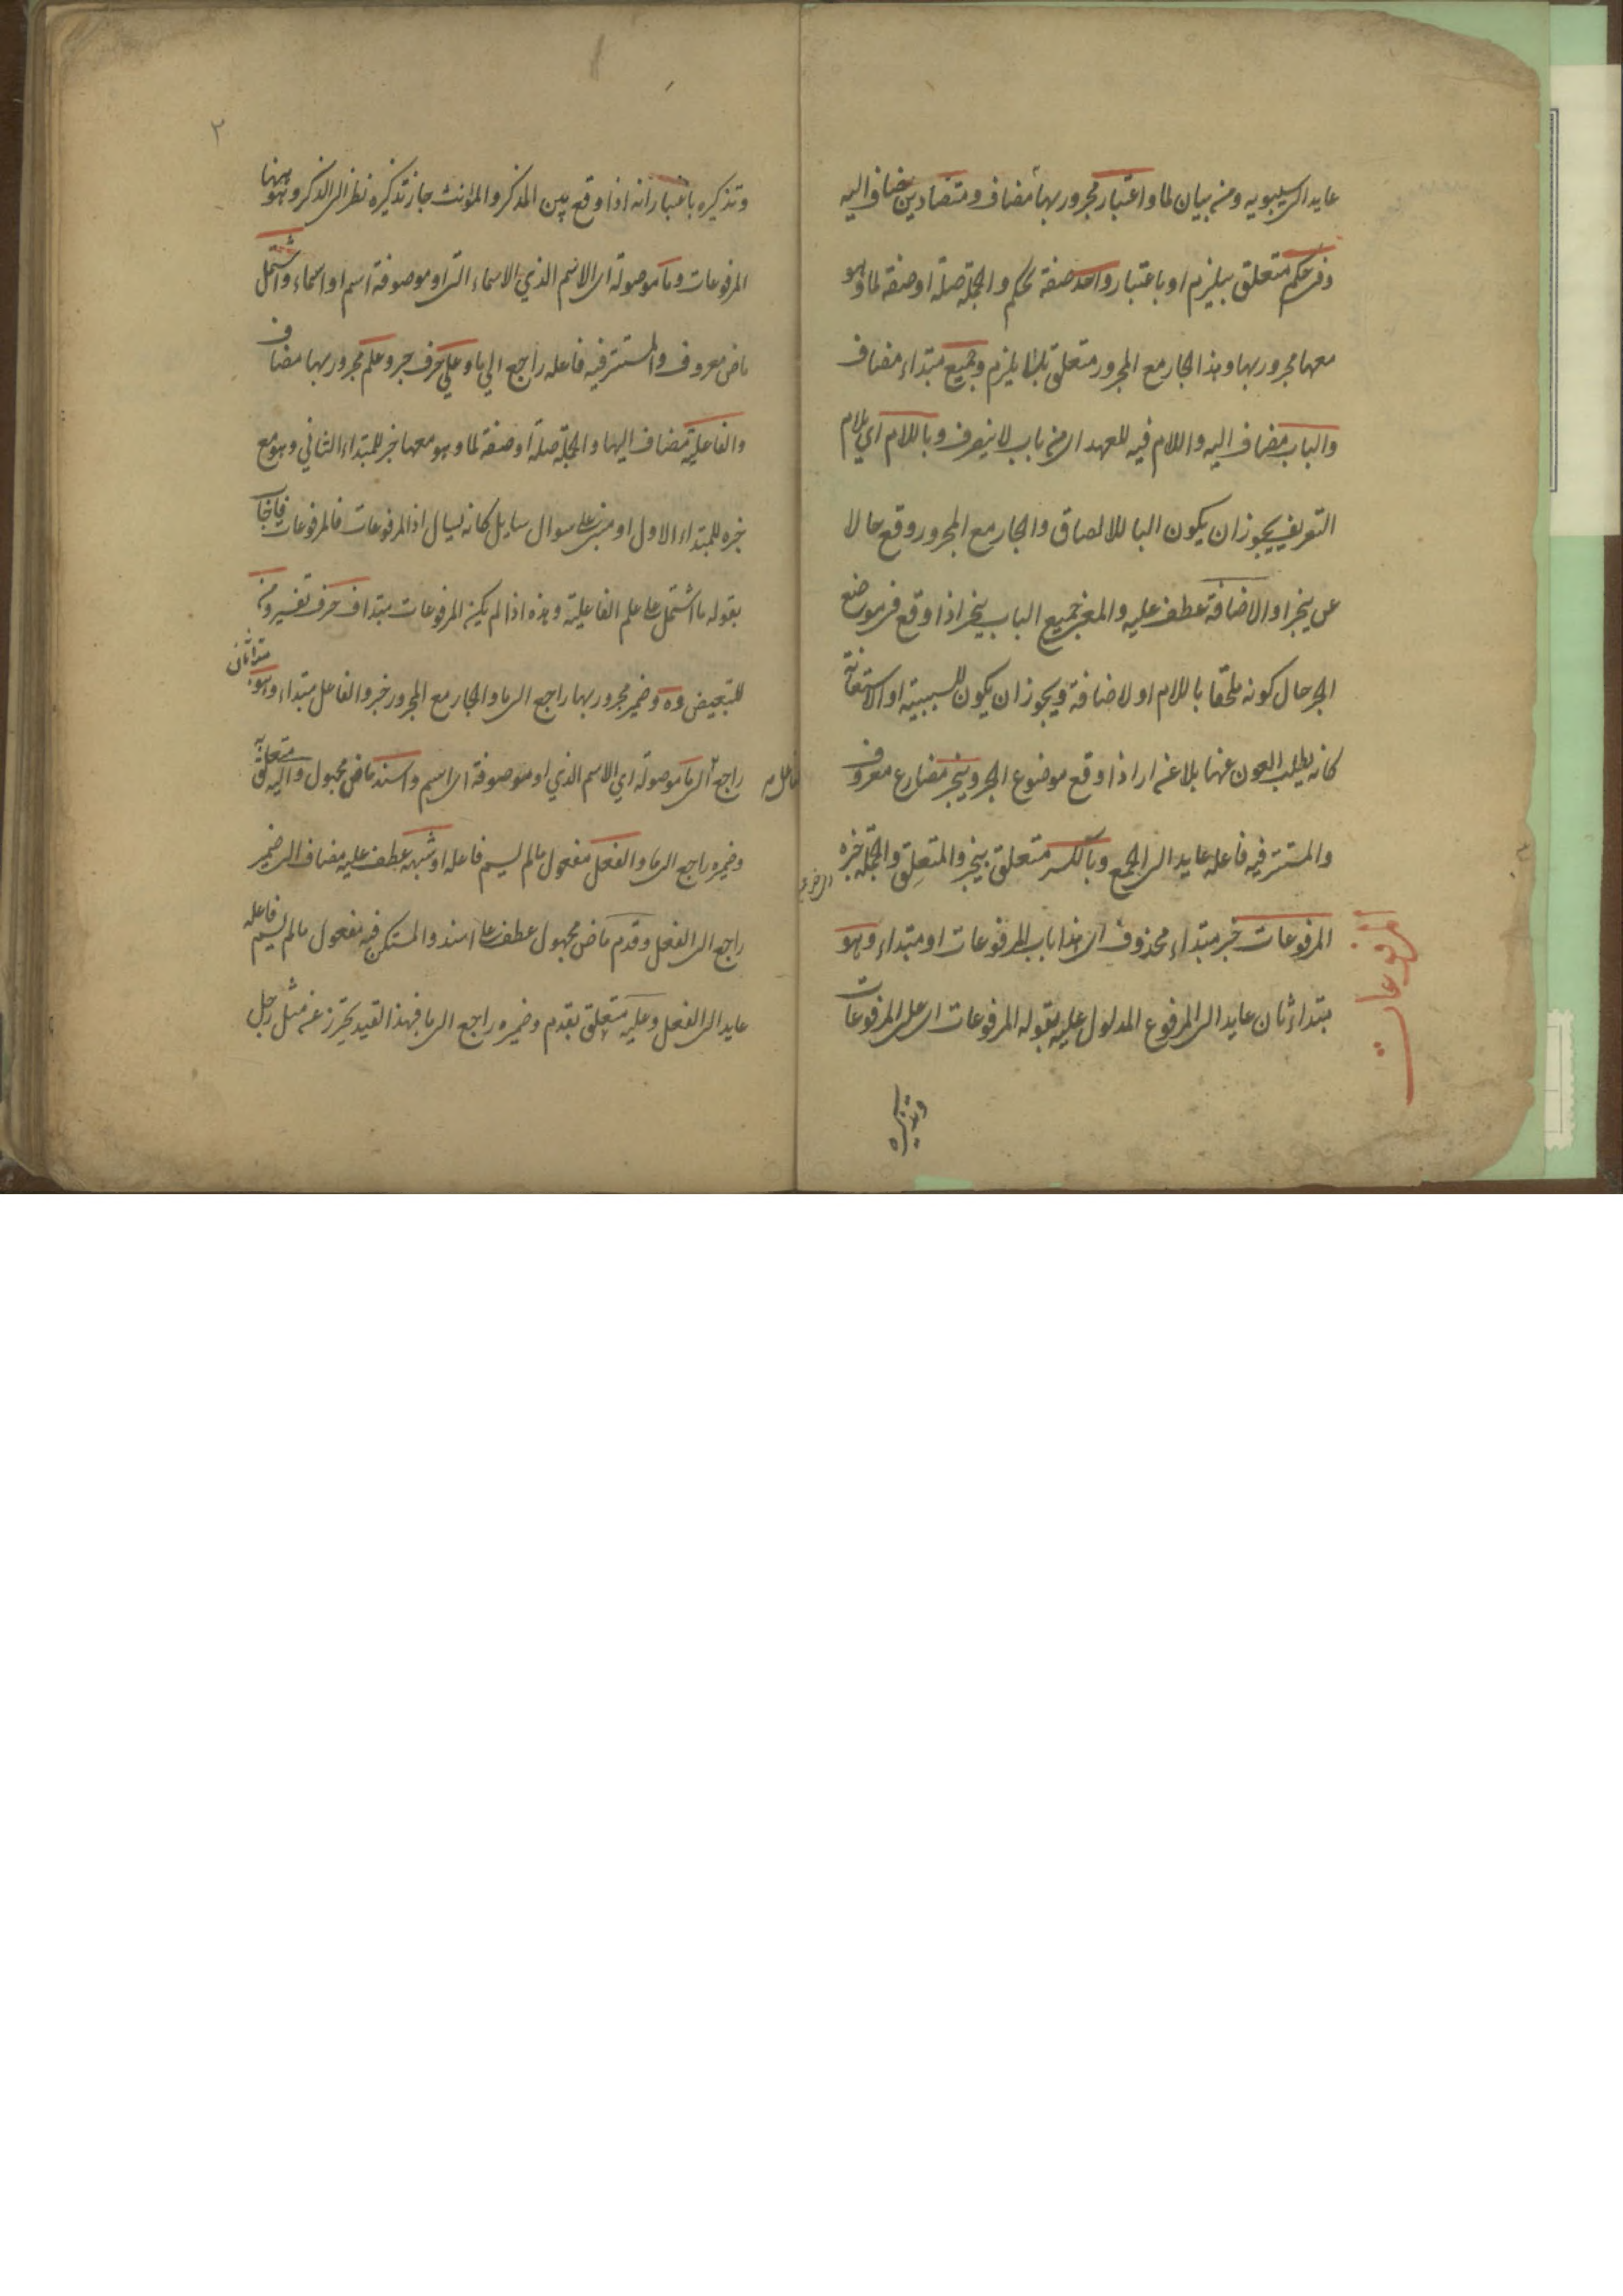 عايد الى سيبويه ومن بيان لما واعتبار مجرور بها مضاف ومتضادين مضاف اليه
وفى حكم متعلق بيلزم او باعتبار واحد صفة لحكم والجملة صلة او صفة لما وهو
معها مجرور بها وهذا الجار مع المجرور متعلق بلما يلزم وجميع مبتداء مضاف
والباب مضاف اليه واللام فيه للعهد اى من باب لا ينصرف وباللام اي بلام
التعريف يجوز ان يكون البا للالصاق والجار مع المجرور وقع حالا
عن ينجر او الاضافة عطف عليه والمعنى جميع الباب ينجر اذا وقع فى موضع
الجر حال كونه ملحقا باللام او لاضافة ويجوز ان يكون للسببية او الاستعانة
كانه يطلب العون عنها بلا عنه اى اذا وقع موضوع الجر وينجر مضارع معروف
والمستتر فيه فاعله عايد الى الجمع وبالكسر متعلق بينجر والمتعلق والجملة خبره
المرفوعات خبر مبتداء محذوف اى هذا باب المرفوعات او مبتداء وهو
مبتداء ثان عايد الى المرفوع المدلول عليه بقوله المرفوعات اى على المرفوعات
المرفوعات
وتذكيره
٢
وتذكيره باعتبار انه اذا وقع بين المذكر والمؤنث جاز تذكيره نظرا الى الذكر وهو ههنا
المرفوعات وما موصولة اى الاسم الذي الاسماء التى او موصوفة اسم او اسماء واشتمل
ماض معروف والمستتر فيه فاعله راجع الي ما وعلي حرف جر وعلم مجرور بها مضاف
والفاعلية مضاف اليها والجملة صلة او صفة لما وهو معها خبر للمبتداء الثاني وهو مع
خبره للمبتداء الاول او مبنى على سوال سايل كانه يسال اذ المرفوعات فالمرفوعات فاجاب
بقوله ما اشتمل على علم الفاعلية وهذه اذا لم يكن المرفوعات مبتدا ف حرف تفسير ومن
للتبعيض وه وضمير مجرور بها راجع الى ما والجار مع المجرور خبر والفاعل مبتداء وهو مبتدا ثان
راجع الى ما موصولة اي الاسم الذي او موصوفة اى اسم واسند ماض مجهول واليه متعلق به
وضميره راجع الى ما والفعل مفعول مالم يسم فاعله او شبهه عطف عليه مضاف الى ضمير
راجع الى الفعل وقدم ماض مجهول عطف على اسند والمستكن فيه مفعول مالم يسم فاعله
عايد الى الفعل وعليه متعلق بقدم وضميره راجع الى ما فبهذا القيد يحترز عنه مثل رجل